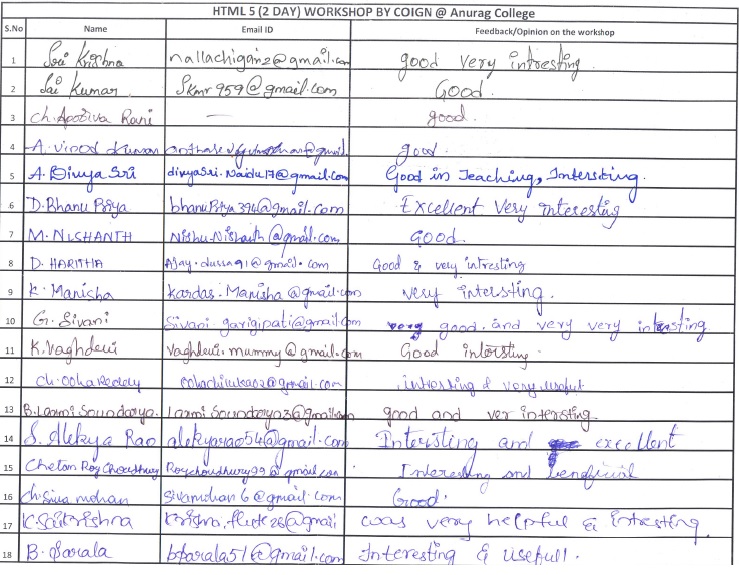 HTML 5 (2 DAY) WORKSHOP BY COIGN @ Anurag College
S.No Name Email ID Feedback/Opinion on the workshop
1 Sai Krishna nallachigan2@gmail.com good very intresting
2 Sai Kumar Skmr959@gmail.com Good.
3 Ch. Apoorva Rani — good.
4 A. Vinod Kumar good
5 A. Divya Sri divyasri.Naidu17@gmail.com Good in Teaching, Intersting.
6 D. Bhanu Priya bhanupriya394@gmail.com Excellent Very interesting
7 M. NISHANTH Nishu.Nishanth@gmail.com GOOD.
8 D. HARITHA Ajay.dussa91@gmail.com Good & very intresting
9 K. Manisha Kardas.Manisha@gmail.com very intersting.
10 G. Sivani Sivani.garigipati@gmail.com good. and very very intersting
11 K. Vaghdevi Vaghdevi.mummy@gmail.com Good intorsting.
12 Ch. Ooha Reddy intrersing & very useful
13 B. Laxmi Soundarya. Laxmi Soundarya3@gmail.com good and ver intersting.
14 S. Alekya Rao alekyarao54@gmail.com Interisting and excellent
15 Chetan Roy Choudhury Roychoudhury99@gmail.com Interesting and benificial
16 Ch. Siva mohan Sivamohan6@gmail.com Good.
17 K. Sai Krishna was very helpful & intresting.
18 B. Sarala bsarala51@gmail.com Interesting & usefull.